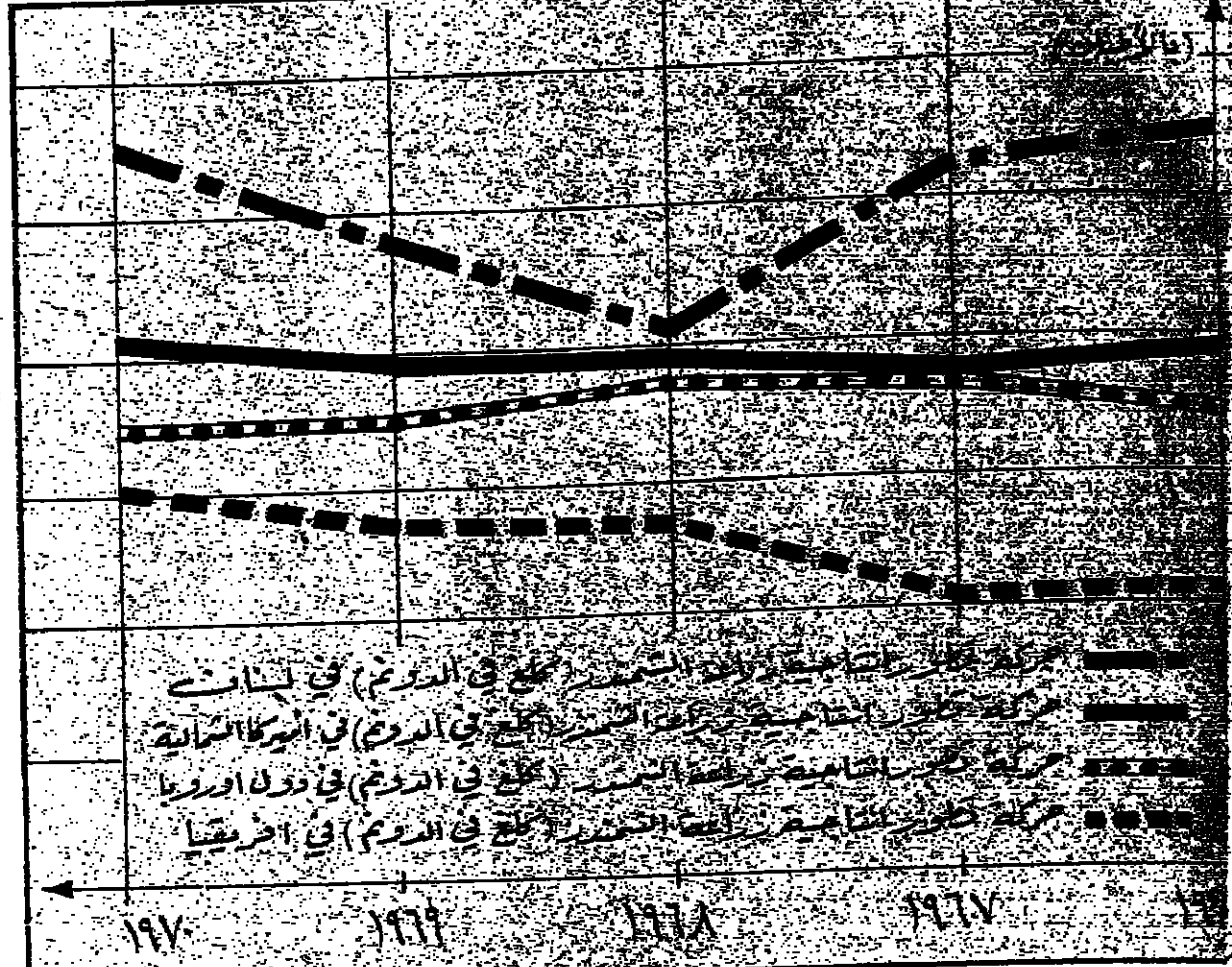 حركة تطور انتاجية زراعة الشمندر (كلغ في الدونم) في لبنان
حركة تطور انتاجية زراعة الشمندر (كلغ في الدونم) في اميركا الشمالية
حركة تطور انتاجية زراعة الشمندر (كلغ في الدونم) في دول اوروبا
حركة تطور انتاجية زراعة الشمندر (كلغ في الدونم) في افريقيا
١٩٦٧ ١٩٦٨ ١٩٦٩ ١٩٧٠